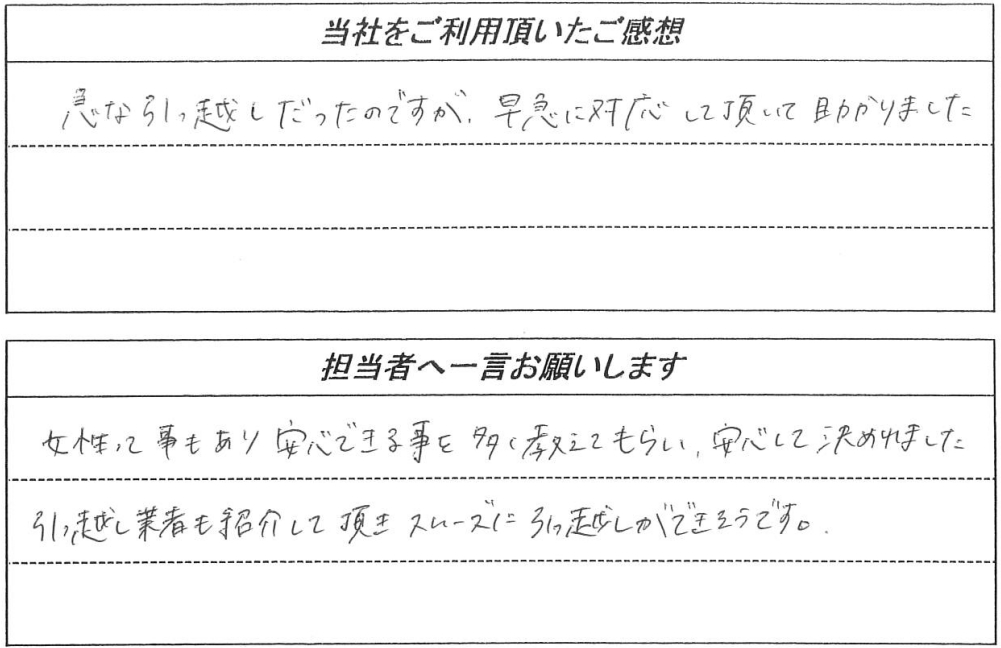 当社をご利用頂いたご感想
急な引っ越しだったのですが、早急に対応して頂いて助かりました
担当者へ一言お願いします
女性って事もあり安心できる事を多く教えてもらい、安心して決めれました
引っ越し業者も紹介して頂きスムーズに引っ越しができそうです。